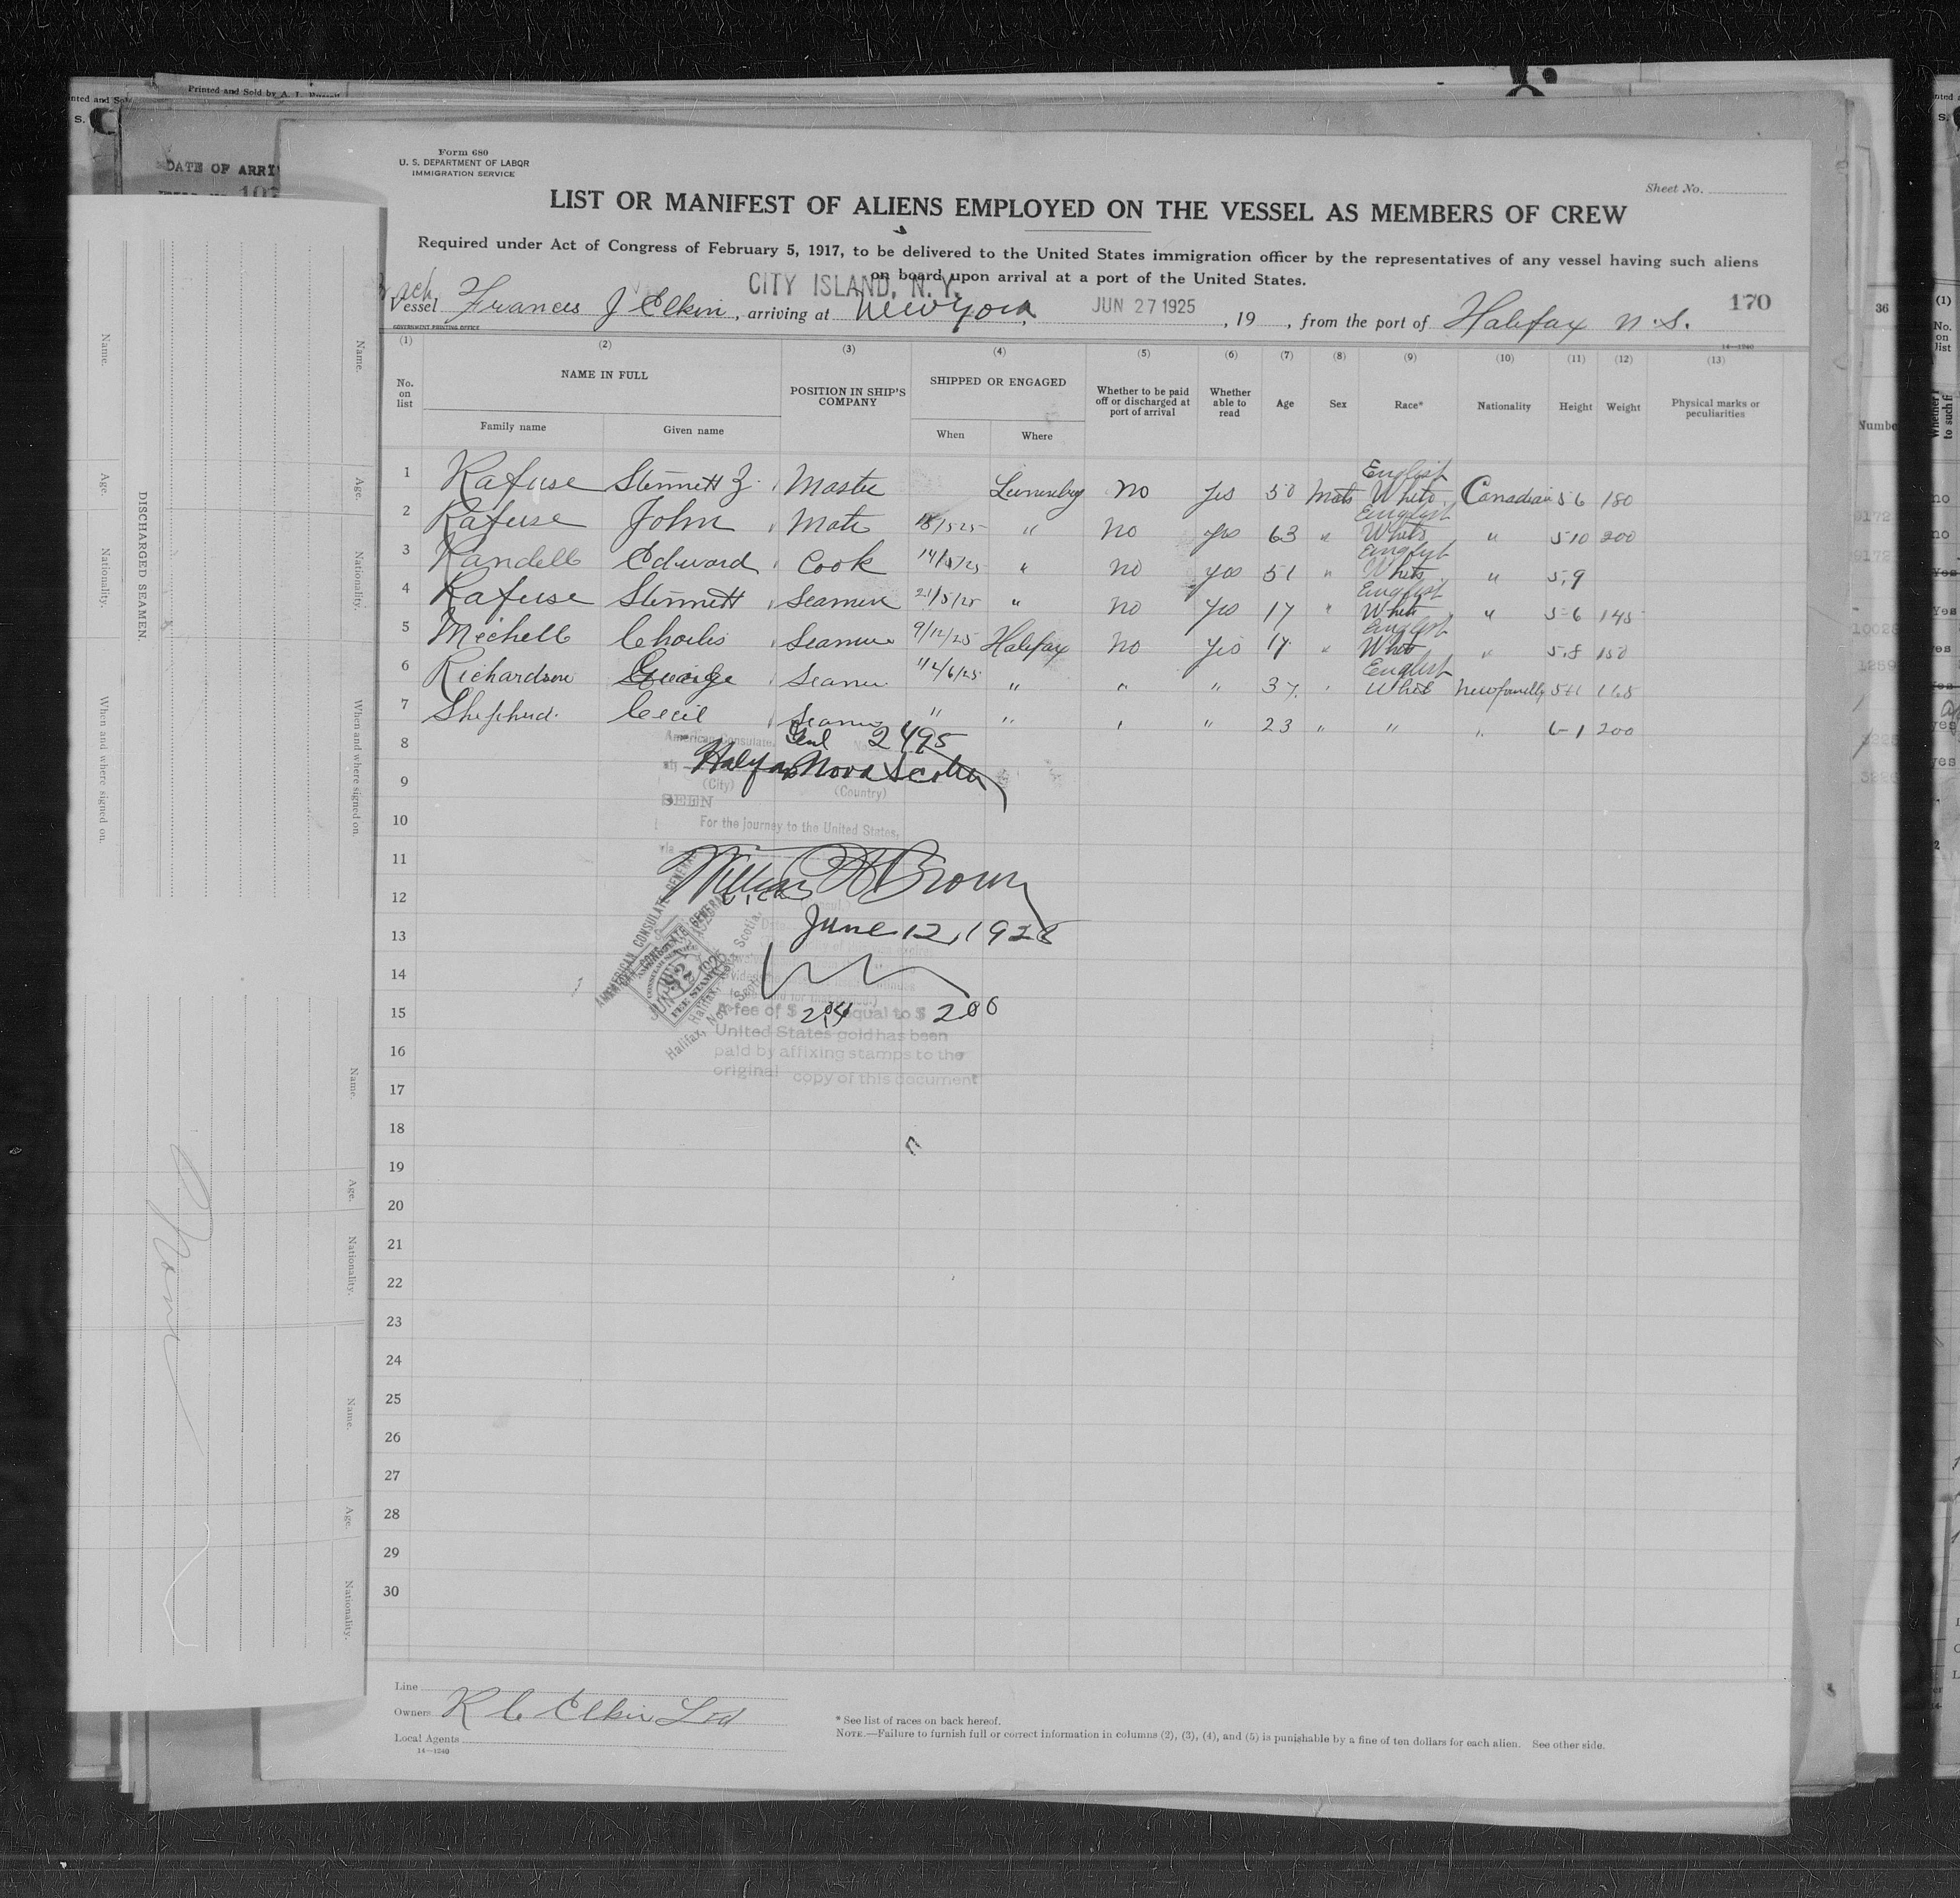 Printed and Sold by A. L.
DATE OF ARRI
Form 680
U. S. DEPARTMENT OF LABOR
IMMIGRATION SERVICE
Sheet No.
LIST OR MANIFEST OF ALIENS EMPLOYED ON THE VESSEL AS MEMBERS OF CREW
Required under Act of Congress of February 5, 1917, to be delivered to the United States immigration officer by the representatives of any vessel having such aliens
on board upon arrival at a port of the United States.
CITY ISLAND, N. Y.
sch
Vessel Frances J Elkin, arriving at New York, JUN 27 1925, 19, from the port of Halifax N.S. 170
GOVERNMENT PRINTING OFFICE
14—1240
(1) (2) (3) (4) (5) (6) (7) (8) (9) (10) (11) (12) (13)
No. on list NAME IN FULL POSITION IN SHIP'S COMPANY SHIPPED OR ENGAGED Whether to be paid off or discharged at port of arrival Whether able to read Age Sex Race* Nationality Height Weight Physical marks or peculiarities
Family name Given name When Where
1 Rafuse Stennett Z. Master Lunenburg No Yes 50 Male English White Canadian 5 6 180
2 Rafuse John Mate 18/5 25 " No Yes 63 " English White " 5 10 200
3 Randell Edward Cook 14/5/25 " No Yes 51 " English White " 5,9
4 Rafuse Stennett Seamen 21/5/25 " No Yes 17 " English White " 5-6 145
5 Mechell Charlis Seamen 9/12/25 Halifax No Yes 17 " English White " 5.8 150
6 Richardson George Seamen 6/25 " " " 37 " English White 165
7 Shepherd. Cecil Seamen " " " " 23 " " " 6-1 200
8
American Consulate Genl 2495
Halifax Nova Scotia
9
(City) (Country)
SEEN
10
For the journey to the United States,
11
William W Brown
12
Vice
13
June 12, 1925
14
15
A fee of $ equal to $ 200
United States gold has been
16
paid by affixing stamps to the
17
original copy of this document
AMERICAN CONSULATE GENERAL
Halifax, Nova Scotia
FEE STAMP
18
19
20
21
22
23
24
25
26
27
28
29
30
Line
Owners R C Elkin Ltd
Local Agents
14—1240
* See list of races on back hereof.
NOTE.—Failure to furnish full or correct information in columns (2), (3), (4), and (5) is punishable by a fine of ten dollars for each alien. See other side.
DISCHARGED SEAMEN.
Name. Age. Nationality. When and where signed on.
Name. Age. Nationality. When and where signed on.
Name. Age. Nationality.
Name. Age. Nationality.
None
36
Numbe